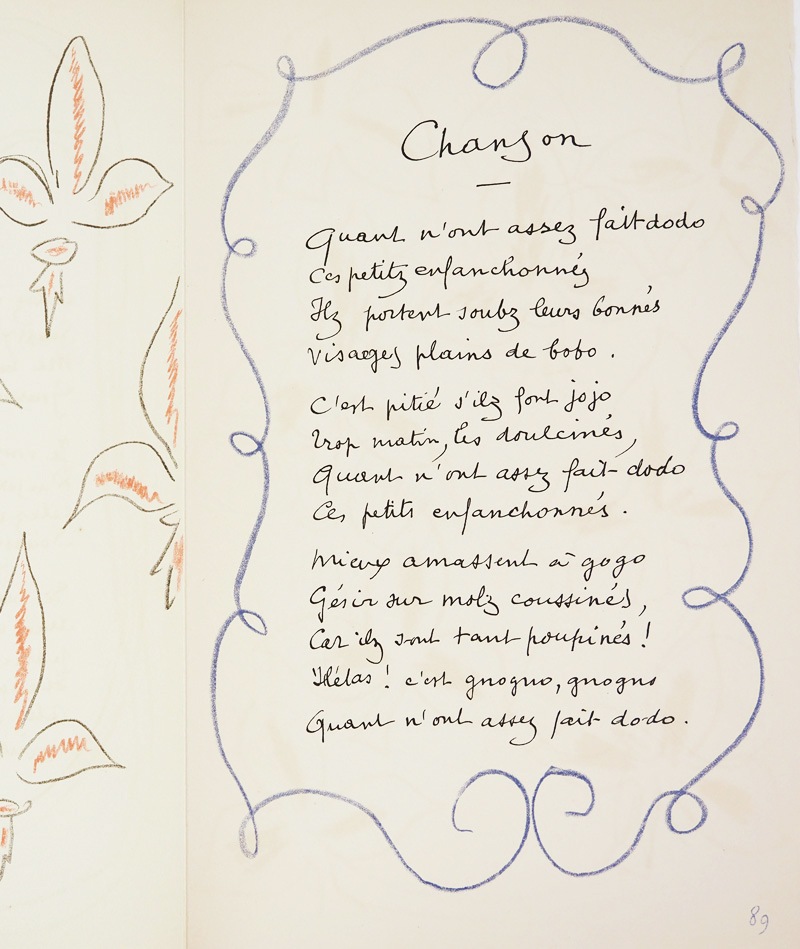 Chanson
Quant n'ont assez fait dodo
Ces petitz enfanchonnés
Ilz portent soubz leurs bonnés
Visages plains de bobo.
C'est pitié s'ilz font jojo
Trop matin, les doulcinés,
Quant n'ont assez fait-dodo
Ces petits enfanchonnés.
Mieux amassent à gogo
Gésir sur molz coussinés,
Car ilz sont tant poupinés!
Hélas! c'est gnogno, gnogno
Quant n'ont assez fait dodo.
89